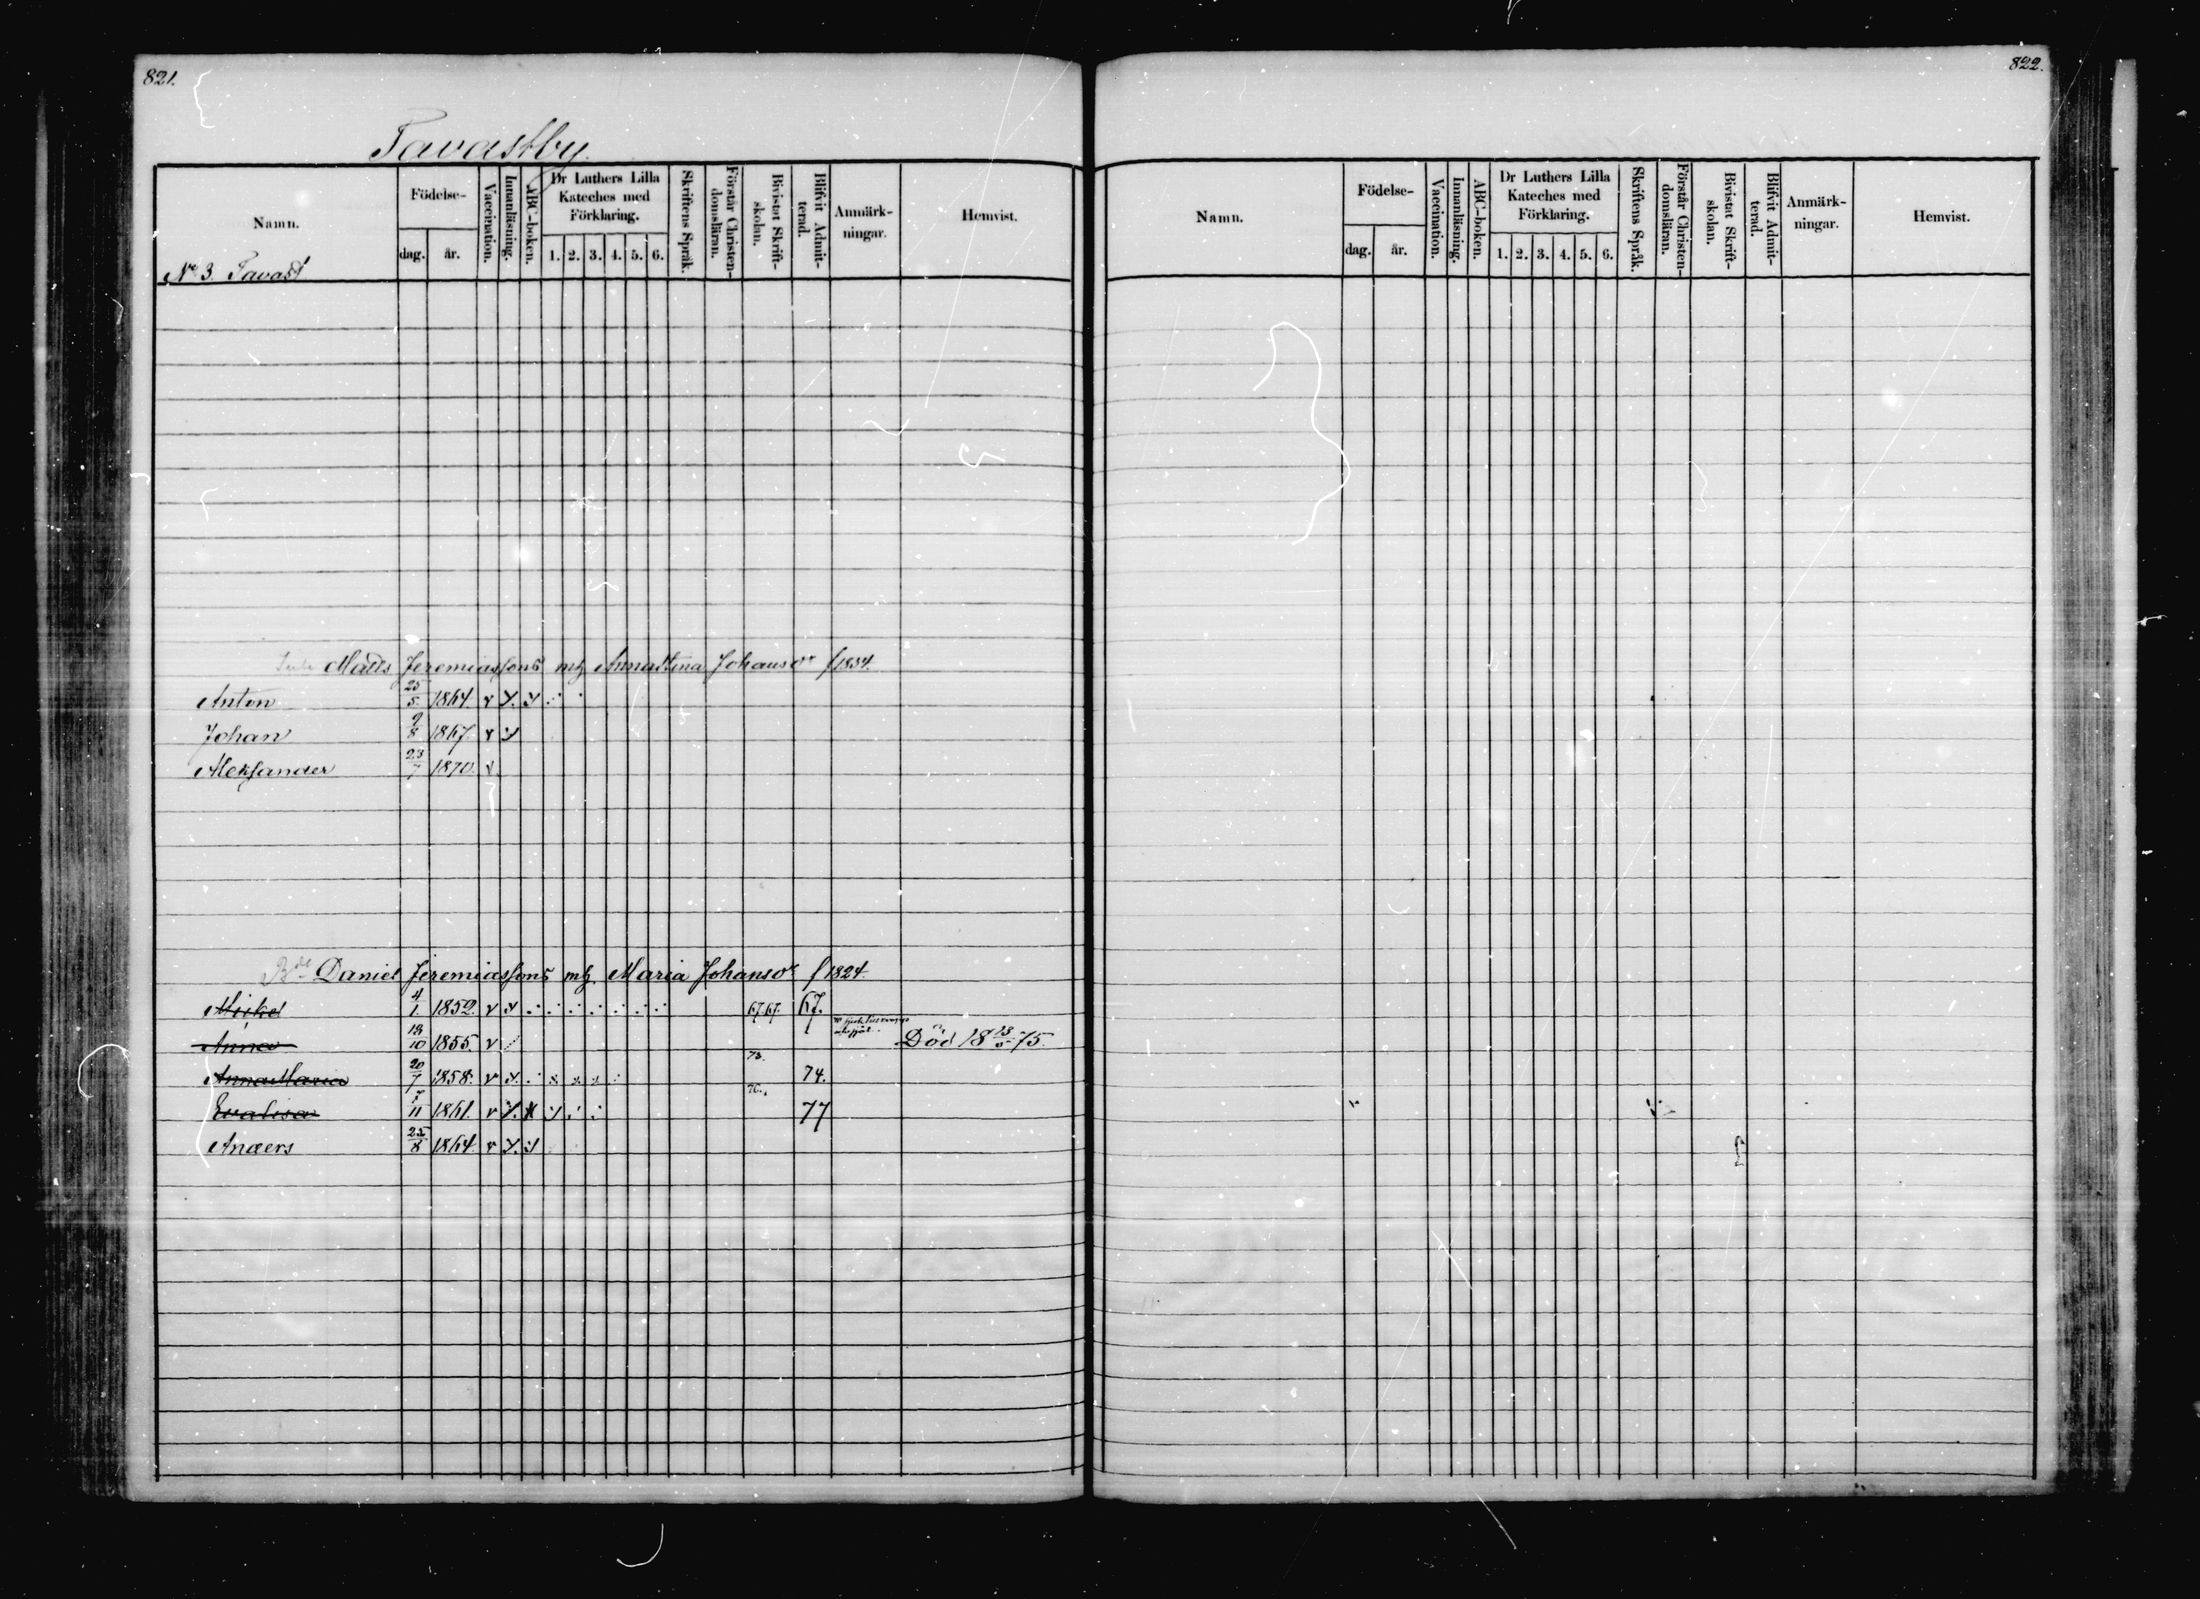 821.
Tavastby.
Namn. Födelse- dag. år. Vaccination. Innanläsning. ABC-boken. Dr Luthers Lilla Kateches med Förklaring. 1. 2. 3. 4. 5. 6. Skriftens Språk. Förstår Christen-domsläran. Bivistat Skrift-skolan. Blifvit Admit-terad. Anmärk-ningar. Hemvist.
No 3 Tavast
Matts Jeremiassons mh Annastina Johansdr f 1834.
Anton 25/5 1864 v
Johan 9/8 1867. v
Aleksander 23/7 1870. v
Bde Daniel Jeremiassons mh Maria Johansdr f 1824
Mickel 4/1 1852. v 67.67. 67.
Anna 13/10 1855. v Död 18 13/5 75.
Anna Maria 20/7 1858. v 73. 74.
Evalisa 7/11 1861. v 76. 77
Anders 25/8 1864. v
822.
Namn. Födelse- dag. år. Vaccination. Innanläsning. ABC-boken. Dr Luthers Lilla Kateches med Förklaring. 1. 2. 3. 4. 5. 6. Skriftens Språk. Förstår Christen-domsläran. Bivistat Skrift-skolan. Blifvit Admit-terad. Anmärk-ningar. Hemvist.